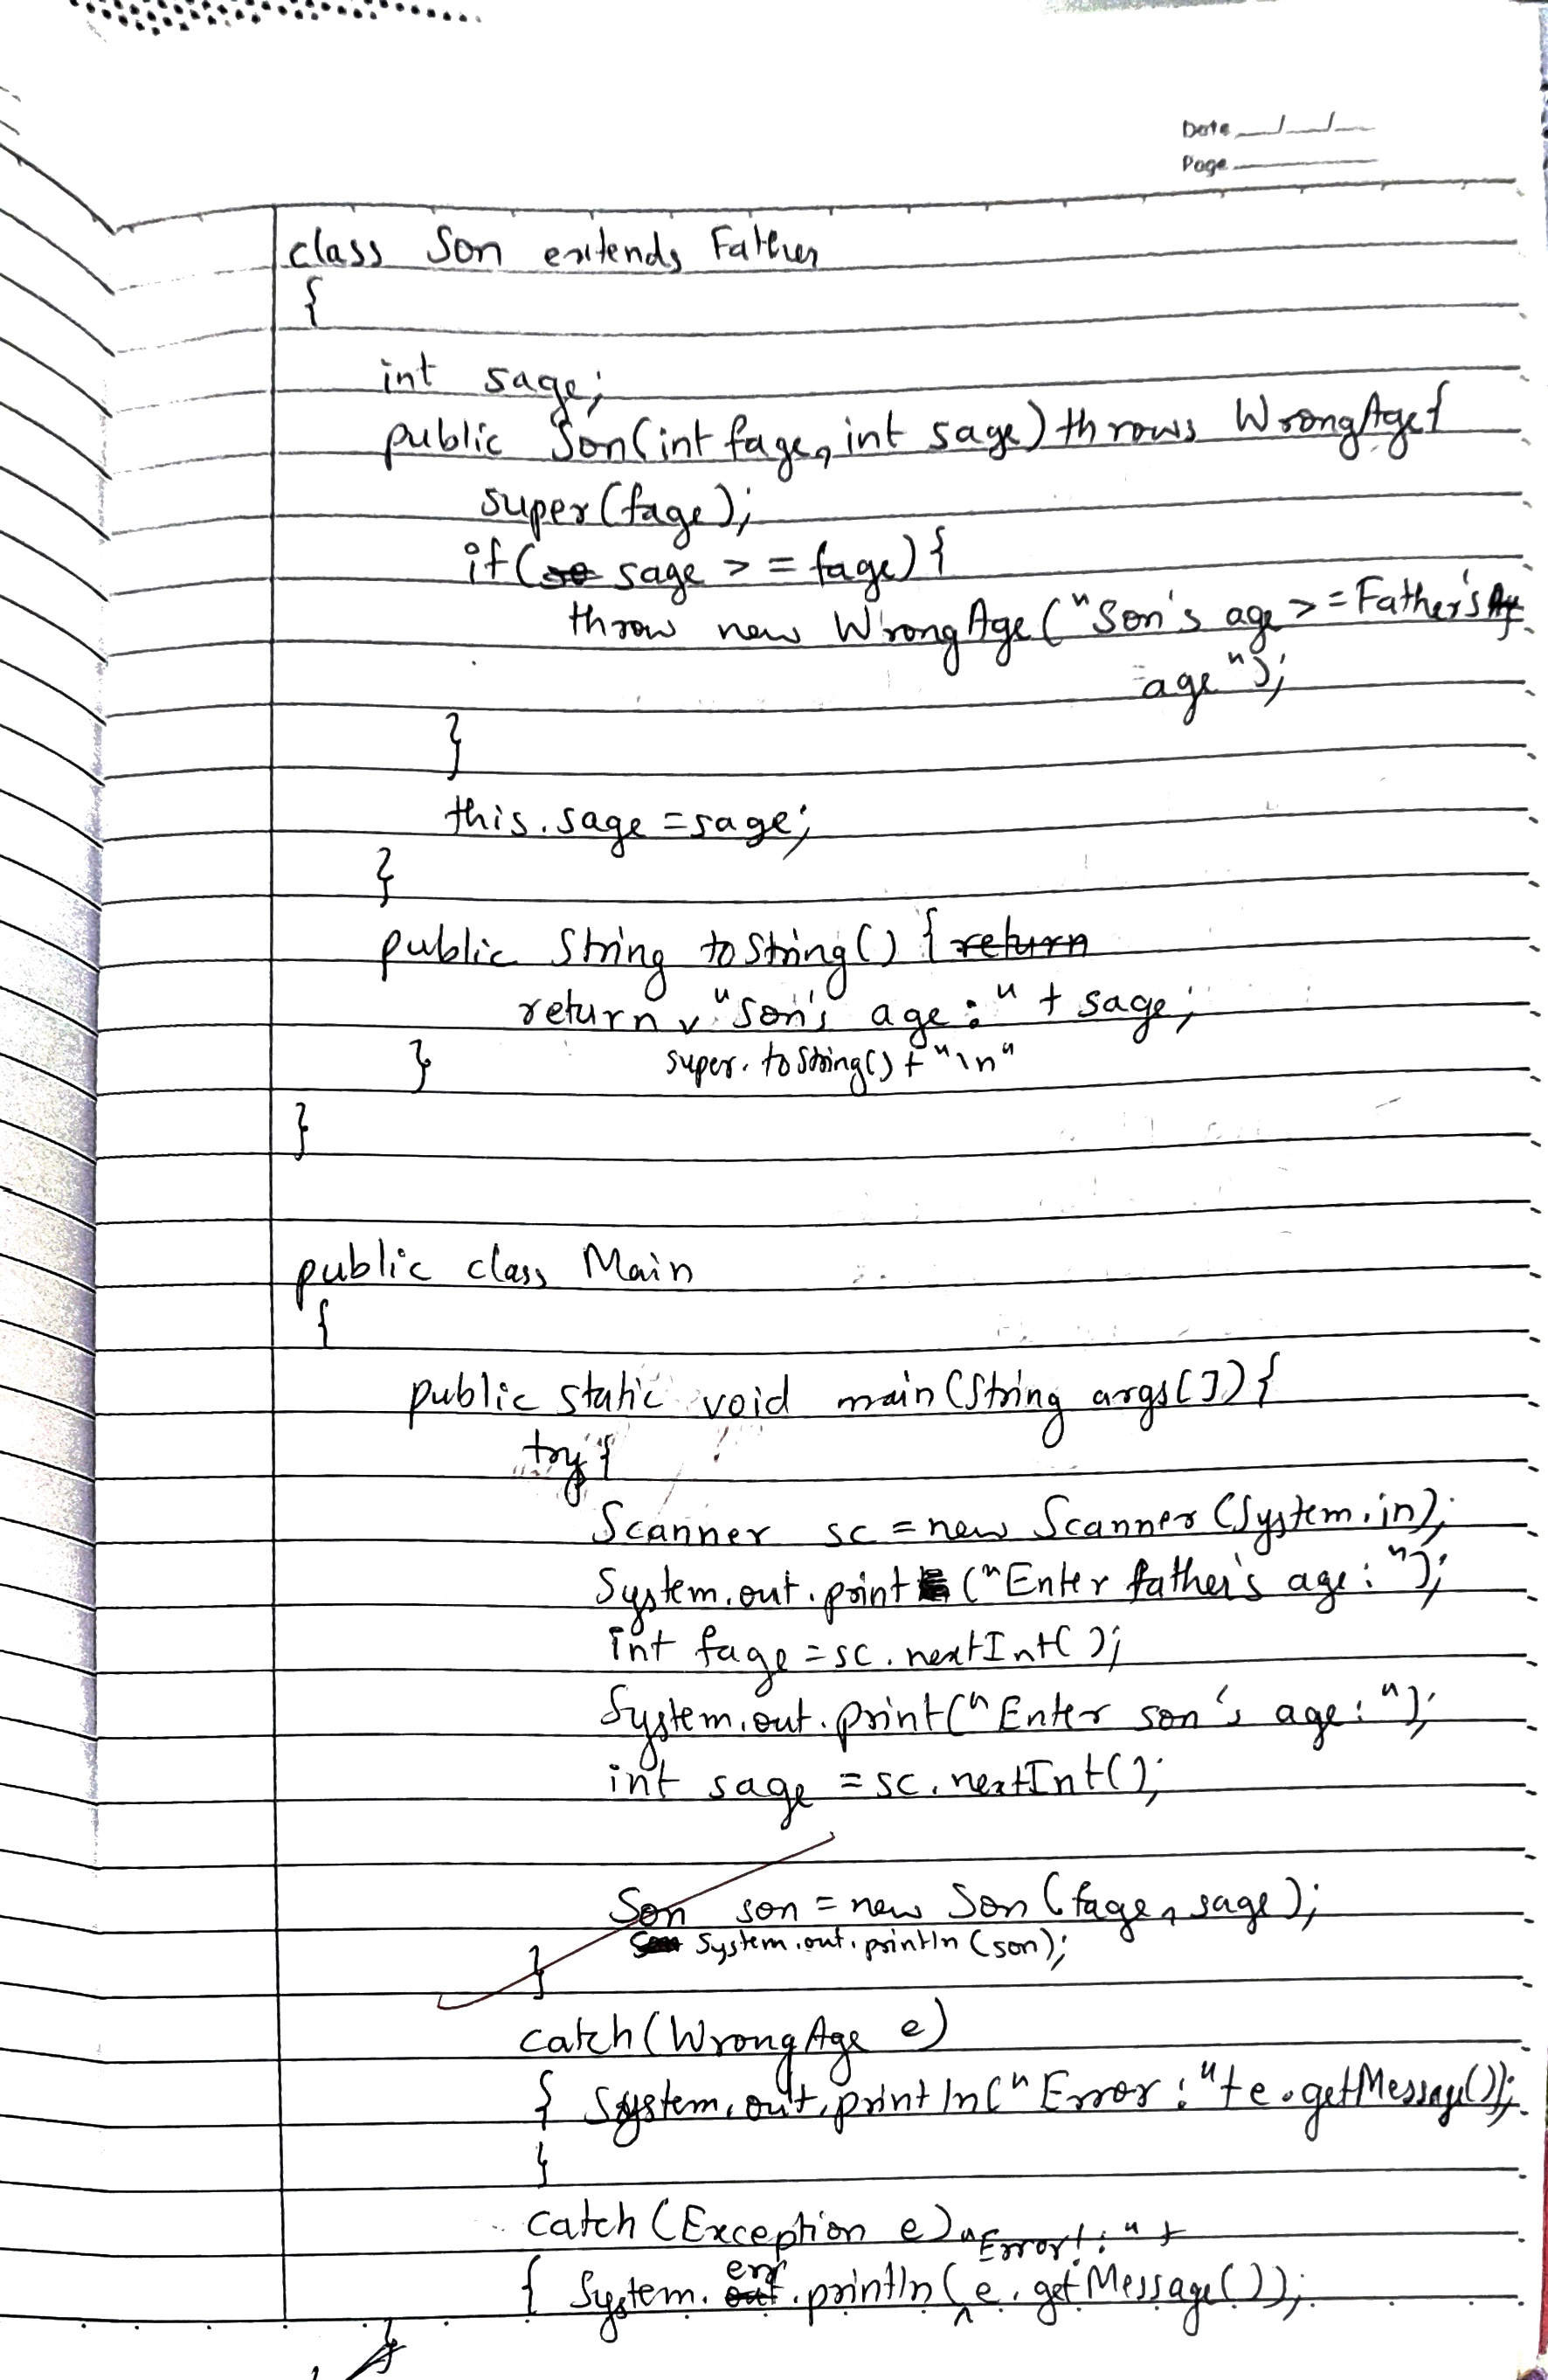 Date
Page
class Son extends Father
{
int sage;
public Son(int fage, int sage) throws WrongAge{
super(fage);
if(sage >= fage){
throw new WrongAge("Son's age >= Father's
age");
}
this.sage = sage;
}
public String toString() { return
return "Son's age: " + sage;
} super.toString() + "\n"
}
public class Main
{
public static void main(String args[]){
try {
Scanner sc = new Scanner(System.in);
System.out.print("Enter father's age: ");
int fage = sc.nextInt();
System.out.print("Enter son's age: ");
int sage = sc.nextInt();
Son son = new Son(fage, sage);
System.out.println(son);
}
catch(WrongAge e)
{ System.out.println("Error: " + e.getMessage());
}
catch(Exception e) "Error!: " +
err
{ System.out.println(e.getMessage());
}